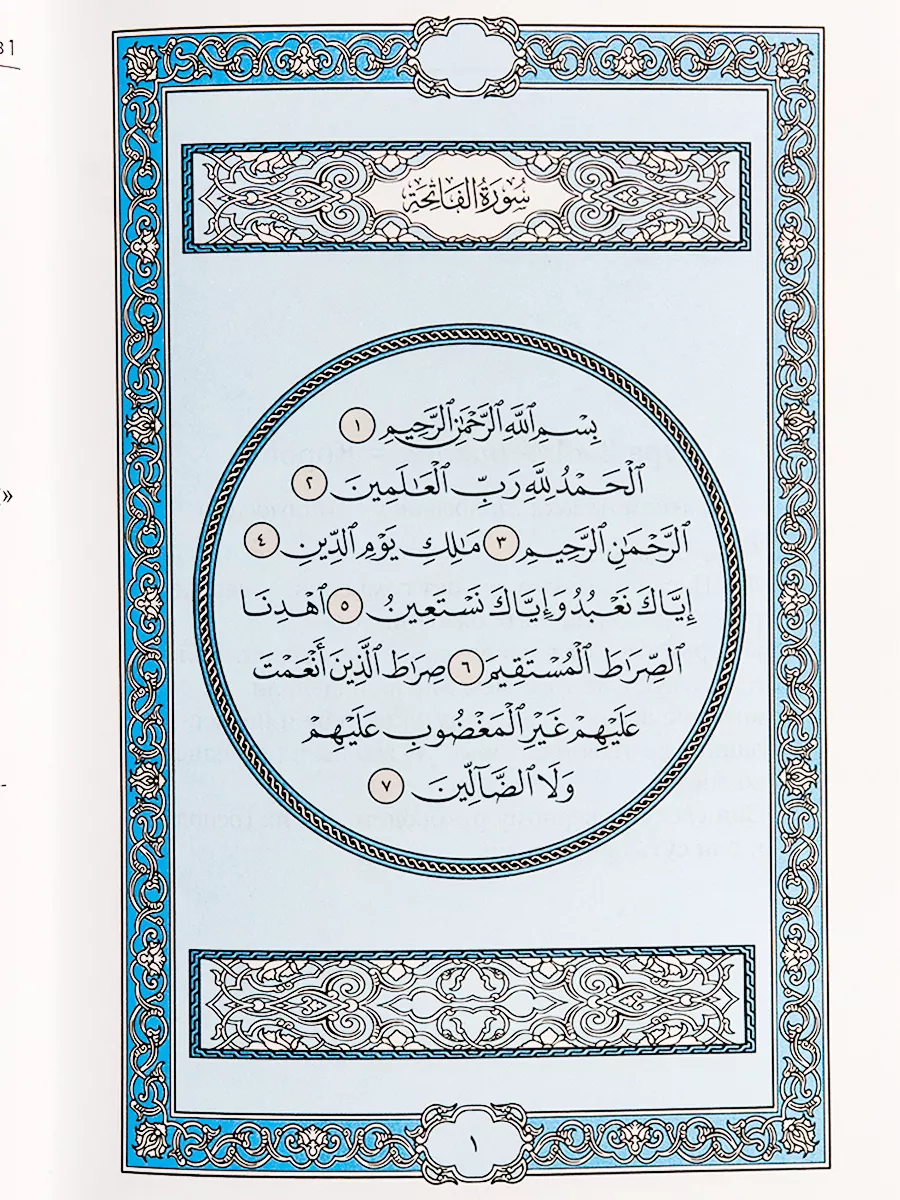 31
سُورَةُ الْفَاتِحَةِ
بِسْمِ ٱللَّهِ ٱلرَّحْمَٰنِ ٱلرَّحِيمِ ١
ٱلْحَمْدُ لِلَّهِ رَبِّ ٱلْعَٰلَمِينَ ٢
ٱلرَّحْمَٰنِ ٱلرَّحِيمِ ٣ مَٰلِكِ يَوْمِ ٱلدِّينِ ٤
إِيَّاكَ نَعْبُدُ وَإِيَّاكَ نَسْتَعِينُ ٥ ٱهْدِنَا
ٱلصِّرَٰطَ ٱلْمُسْتَقِيمَ ٦ صِرَٰطَ ٱلَّذِينَ أَنْعَمْتَ
عَلَيْهِمْ غَيْرِ ٱلْمَغْضُوبِ عَلَيْهِمْ
وَلَا ٱلضَّآلِّينَ ٧
»
-
١